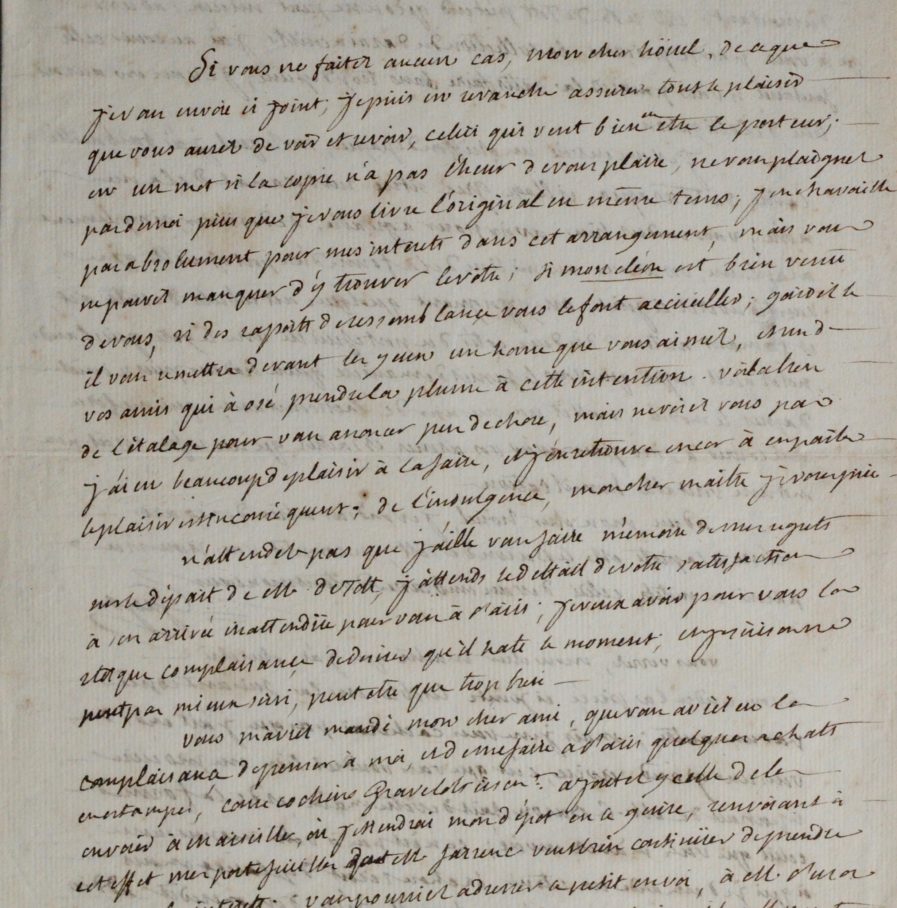 Si vous ne faites aucun cas, mon cher hóüel, de ce que
je vous envoie ci joint, je puis en revanche assurer tout le plaisir
que vous aurez de voir et revoir, celui qui veut bien en etre le porteur;
en un mot si la copie n'a pas l'heur de vous plaire, ne vous plaignez
pas de moi puis que je vous livre l'original en même tems; je ne travaille
pas absolument pour mes interets dans cet arrangement, mais vous
ne pouvez manquer d'y trouver le votre; si mon cléon est bien venu
de vous, si des raports de ressemblance vous le font accueiller; gardez le
il vous remettra devant les yeux un home que vous aimez, et un d
vos amis qui à osé prendre la plume à cette intention. voila bien
de l'étalage pour vous anoncer peu de chose, mais ne voiez vous pas
j'ai eu beaucoup de plaisir à la faire, et j'en retrouve encor à en parler
le plaisir est inconséquent; de l'indulgence, mon cher maitre je vous prie
n'attendez pas que j'aille vous faire mémoire de mes regrets
sur le départ de Mr. de Tott, j'attends le détail de votre satisfaction
à son arrivée inattendüe pour vous à Paris; je veux avoir pour vous la
complaisance de desirer qu'il hate le moment, et je suis on ne
peut pas mieux servi, peut etre que trop bien
vous m'aviez mandé mon cher ami, que vous aviez eu la
complaisance de penser à moi, et de me faire à Paris quelques achats
en estampes, come cochins Gravelots Eisen &. ajoutez y celle de les
envoier à Marseille, où j'etendrai mon dépot en ce genre, renvoiant à
cet effet mes portefeuilles Mr Sarrenc veut bien continüer de prendre
interets. vous pourriez adresser ce petit envoi, à Mr.